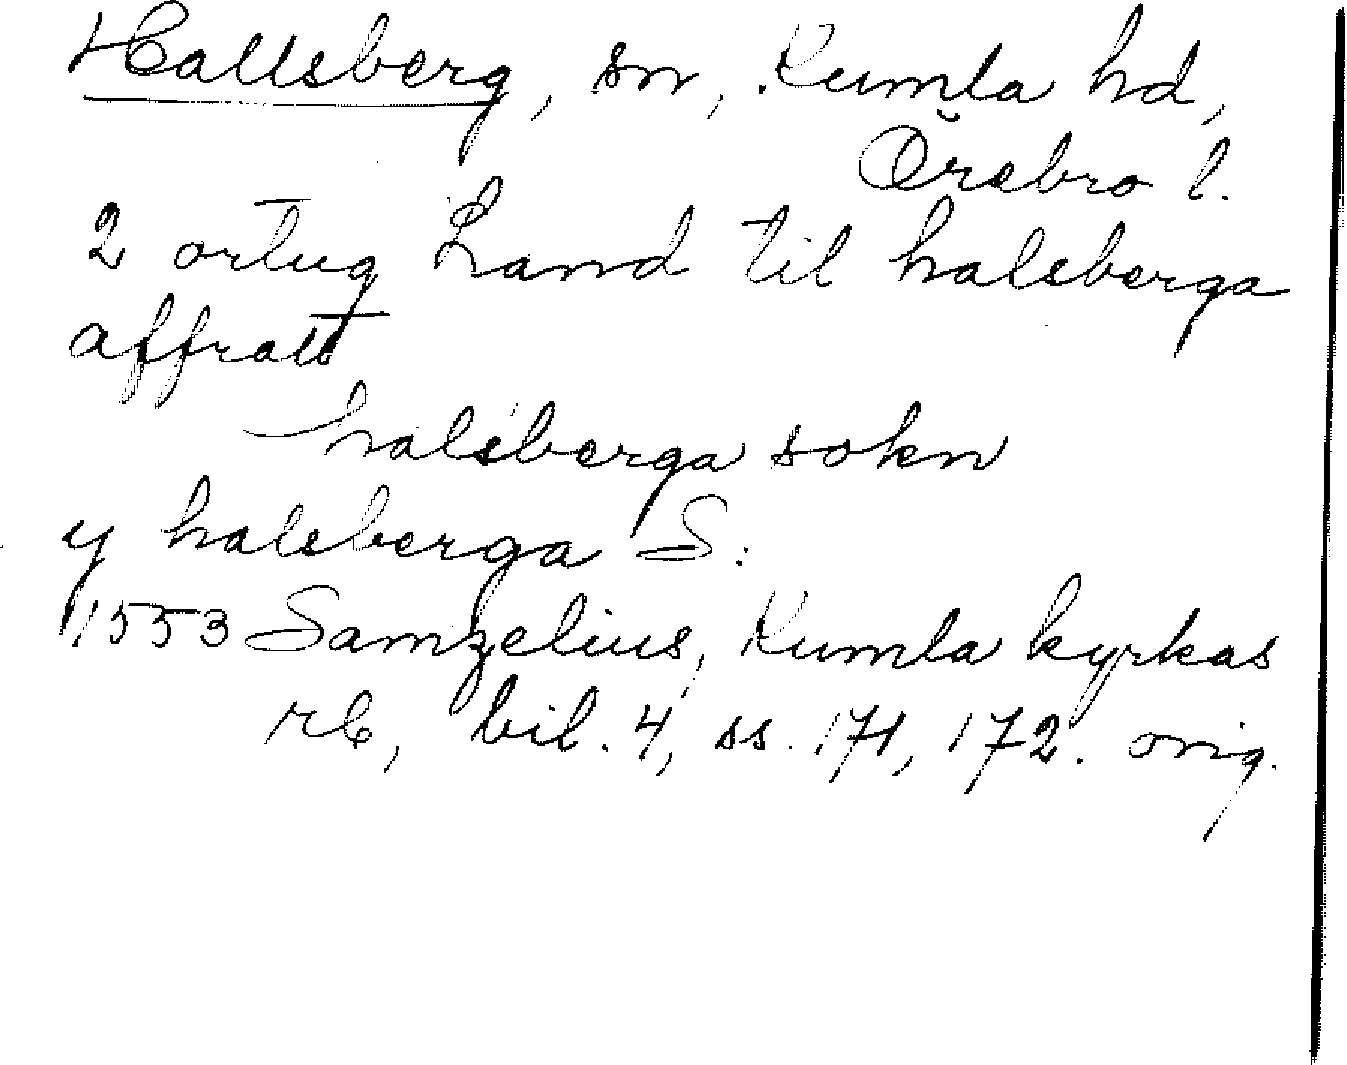 Hallsberg, sn, Kumla hd,
Örebro l.
2 örtug Land til halsberga
affratt
halsberga sokn
y halsberga S:
1553 Samzelius, Kumla kyrkas
rb, bil. 4, ss. 171, 172. orig.